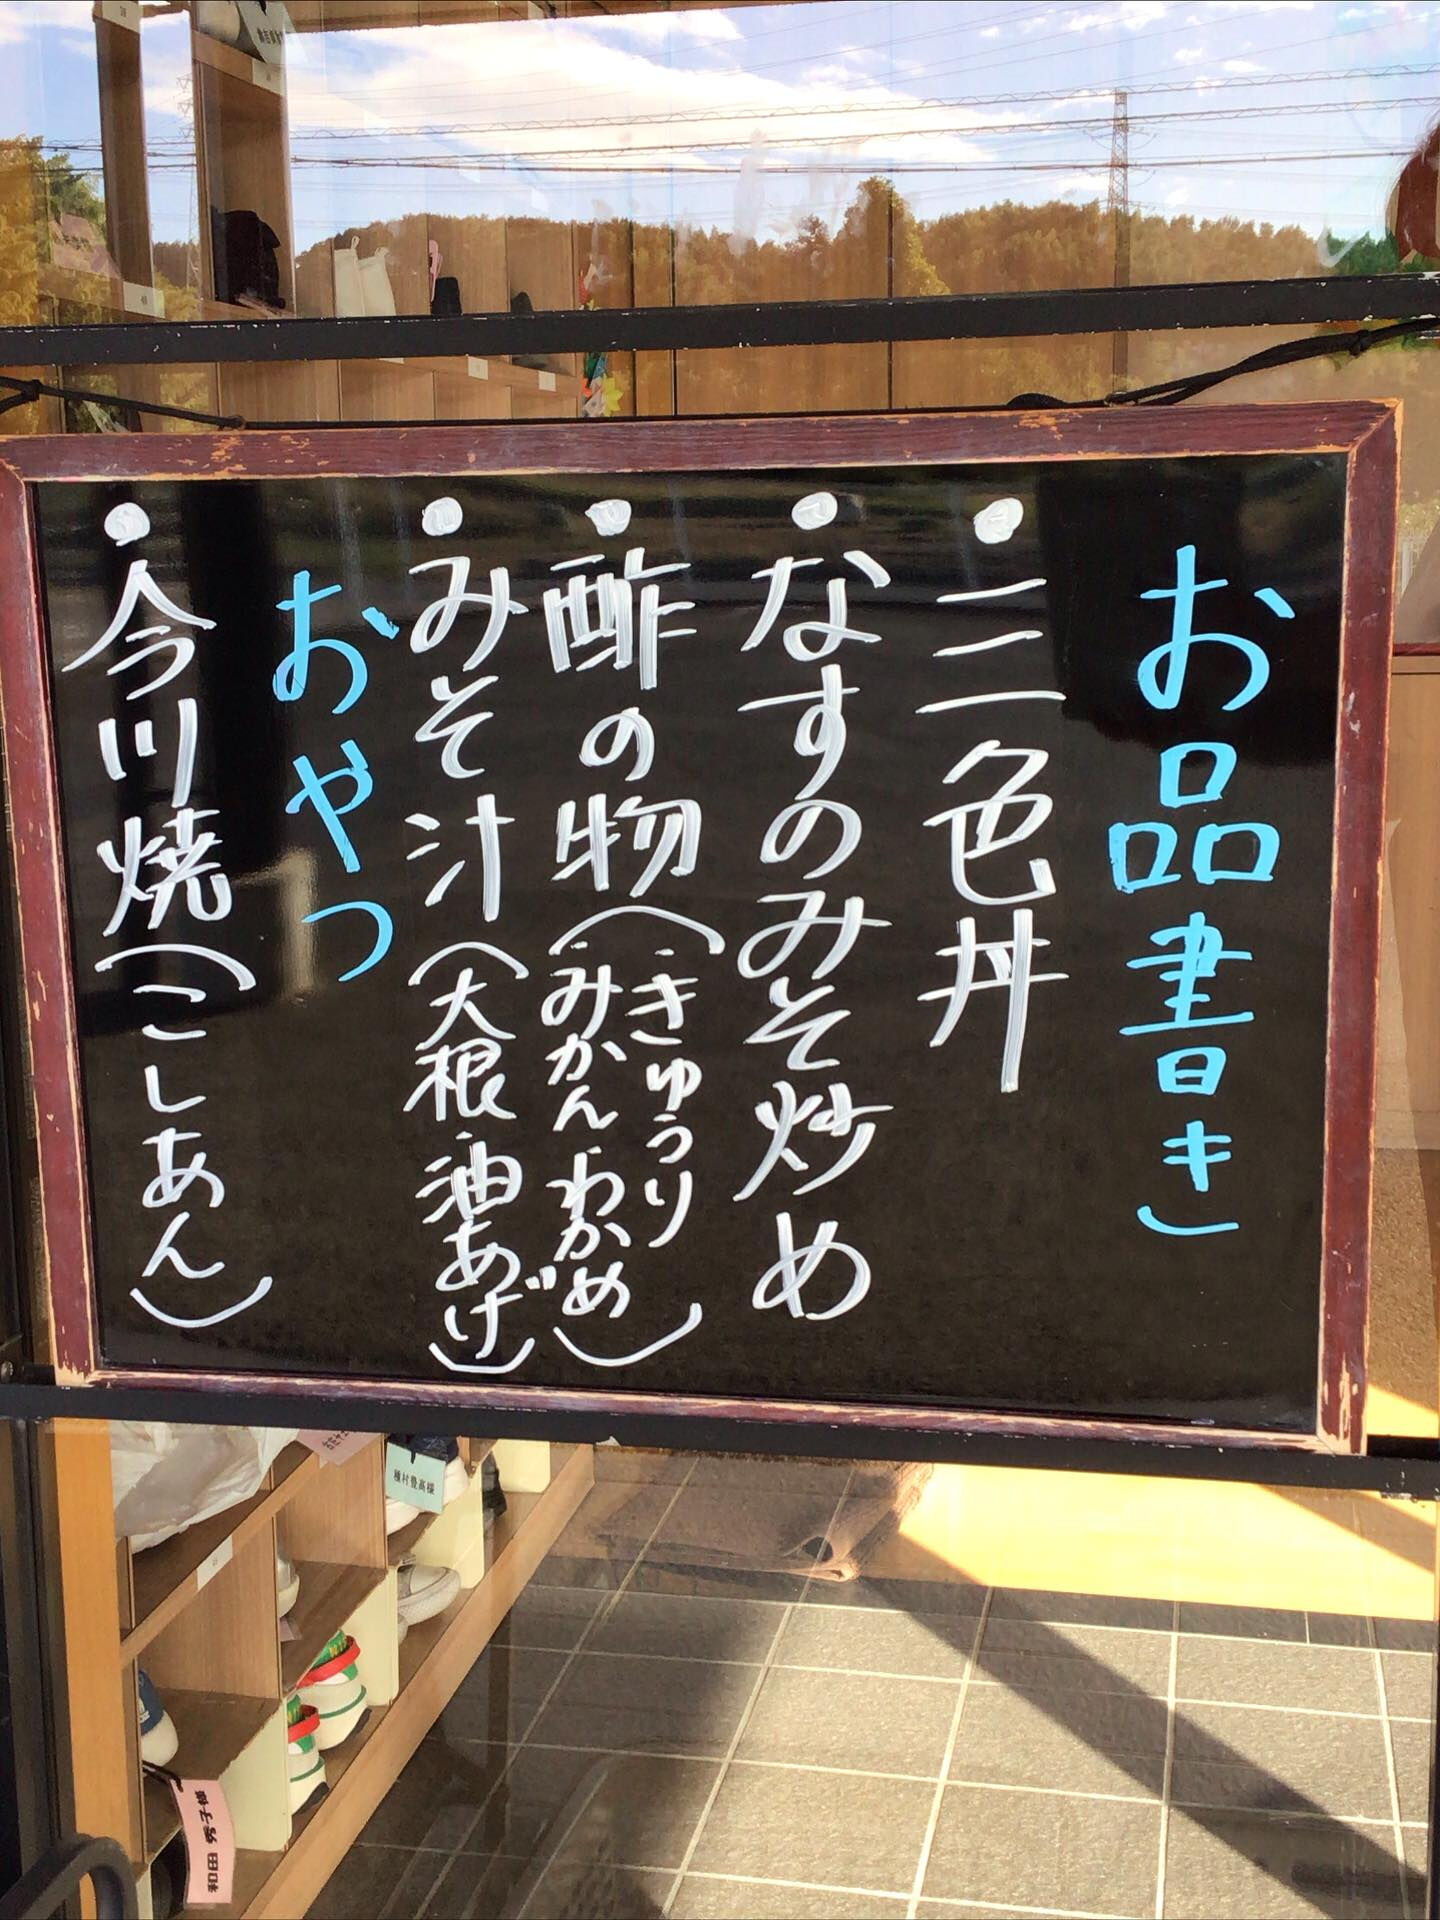 お品書き
・三色丼
・なすのみそ炒め
・酢の物(・きゅうり
・みかん・わかめ)
・みそ汁(大根・油あげ)
おやつ
・今川焼(こしあん)
種村豊高様
和田 秀子様